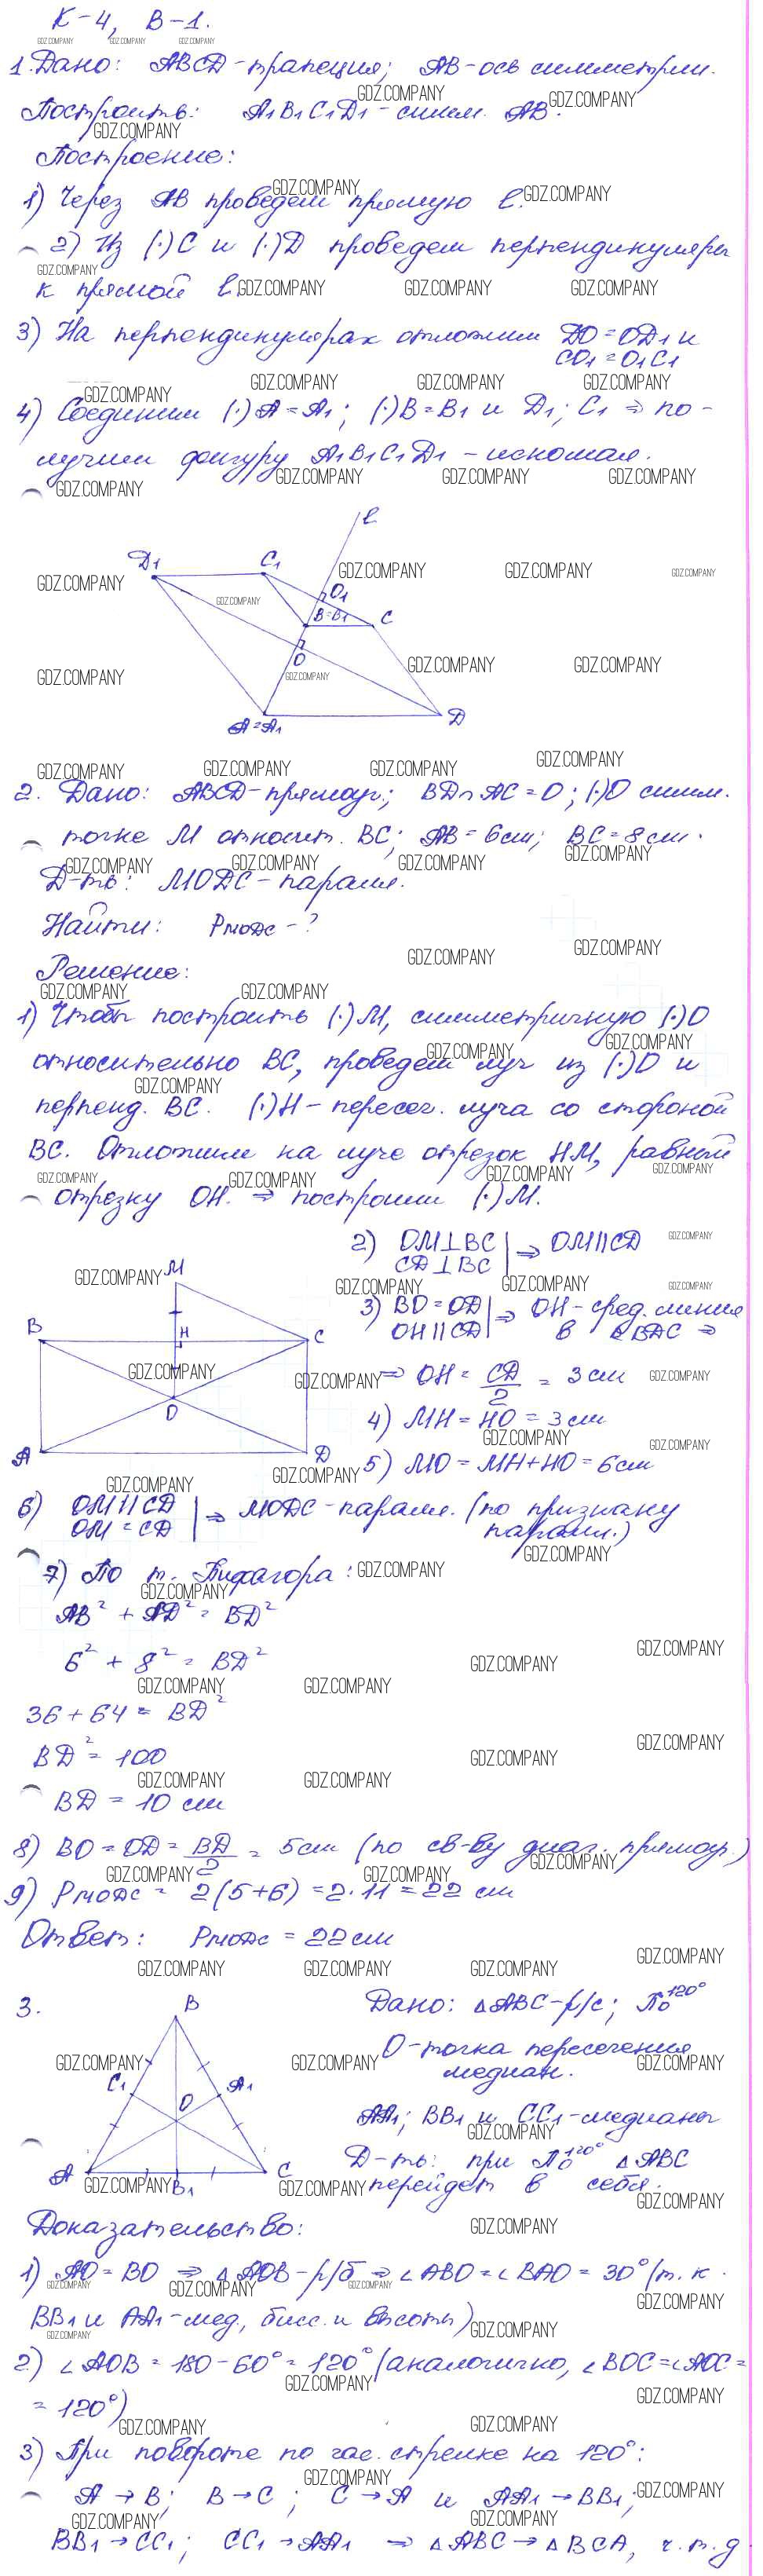 К-4, В-1.
1. Дано: ABCD - трапеция; AB - ось симметрии.
Построить: A₁B₁C₁D₁ - симм. AB.
Построение:
1) Через AB проведем прямую l.
2) Из (·)C и (·)D проведем перпендикуляры
к прямой l.
3) На перпендикулярах отложим DO = OD₁ и
CO₁ = O₁C₁
4) Соединим (·)A = A₁; (·)B = B₁ и D₁; C₁ ⇒ по-
лучим фигуру A₁B₁C₁D₁ - искомая.
l
D₁ C₁
O₁
B=B₁ C
O
A=A₁ D
2. Дано: ABCD - прямоуг; BD∩AC = O; (·)O симм.
точке M относит. BC; AB = 6 см; BC = 8 см.
Д-ть: MODC - паралл.
Найти: PMODC - ?
Решение:
1) Чтобы построить (·)M, симметричную (·)O
относительно BC, проведем луч из (·)O и
перпенд. BC. (·)H - пересеч. луча со стороной
BC. Отложим на луче отрезок HM, равный
отрезку OH. ⇒ построим (·)M.
M
B H C
O
A D
2) OM⊥BC | ⇒ OM||CD
CD⊥BC
3) BO = OD | ⇒ OH - сред. линия
OH||CD в ∠BDC ⇒
⇒ OH = CD/2 = 3 см
4) MH = HO = 3 см
5) MO = MH + HO = 6 см
6) OM||CD | ⇒ MODC - паралл. (по признаку
OM = CD паралл.)
7) По т. Пифагора:
AB² + AD² = BD²
6² + 8² = BD²
36 + 64 = BD²
BD² = 100
BD = 10 см
8) BO = OD = BD/2 = 5 см (по св-ву диаг. прямоуг.)
9) PMODC = 2(5+6) = 2·11 = 22 см
Ответ: PMODC = 22 см
3.
B
C₁ A₁
O
A B₁ C
Дано: △ABC - р/с; П₀¹²⁰°
O - точка пересечения
медиан.
AA₁; BB₁ и CC₁ - медианы
Д-ть: при П₀¹²⁰° △ABC
перейдет в себя.
Доказательство:
1) AO = BO ⇒ △AOB - р/б ⇒ ∠ABO = ∠BAO = 30° (т. к.
BB₁ и AA₁ - мед, бисс. и высоты)
2) ∠AOB = 180 - 60° = 120° (аналогично, ∠BOC = ∠AOC =
= 120°)
3) При повороте по час. стрелке на 120°:
A → B; B → C; C → A и AA₁ → BB₁;
BB₁ → CC₁; CC₁ → AA₁ ⇒ △ABC → △BCA, ч.т.д.
GDZ.COMPANY